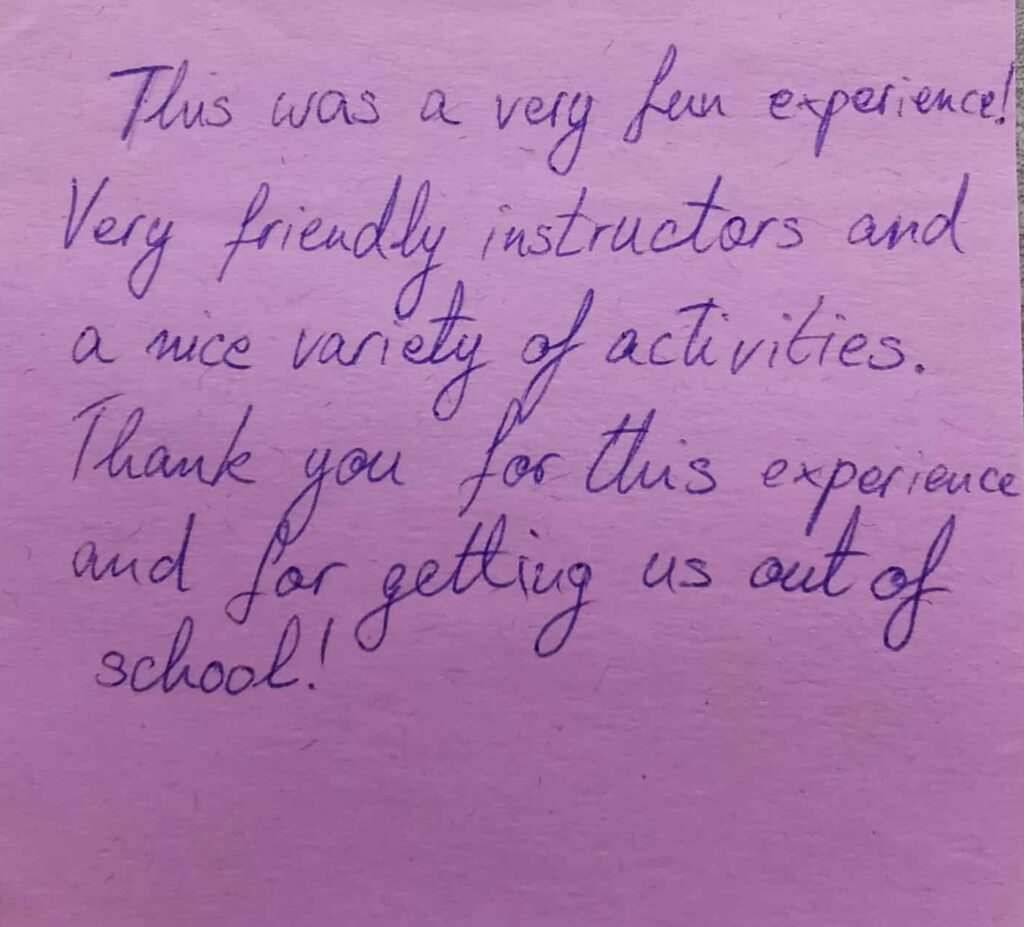 This was a very fun experience!
Very friendly instructors and
a nice variety of activities.
Thank you for this experience
and for getting us out of
school!